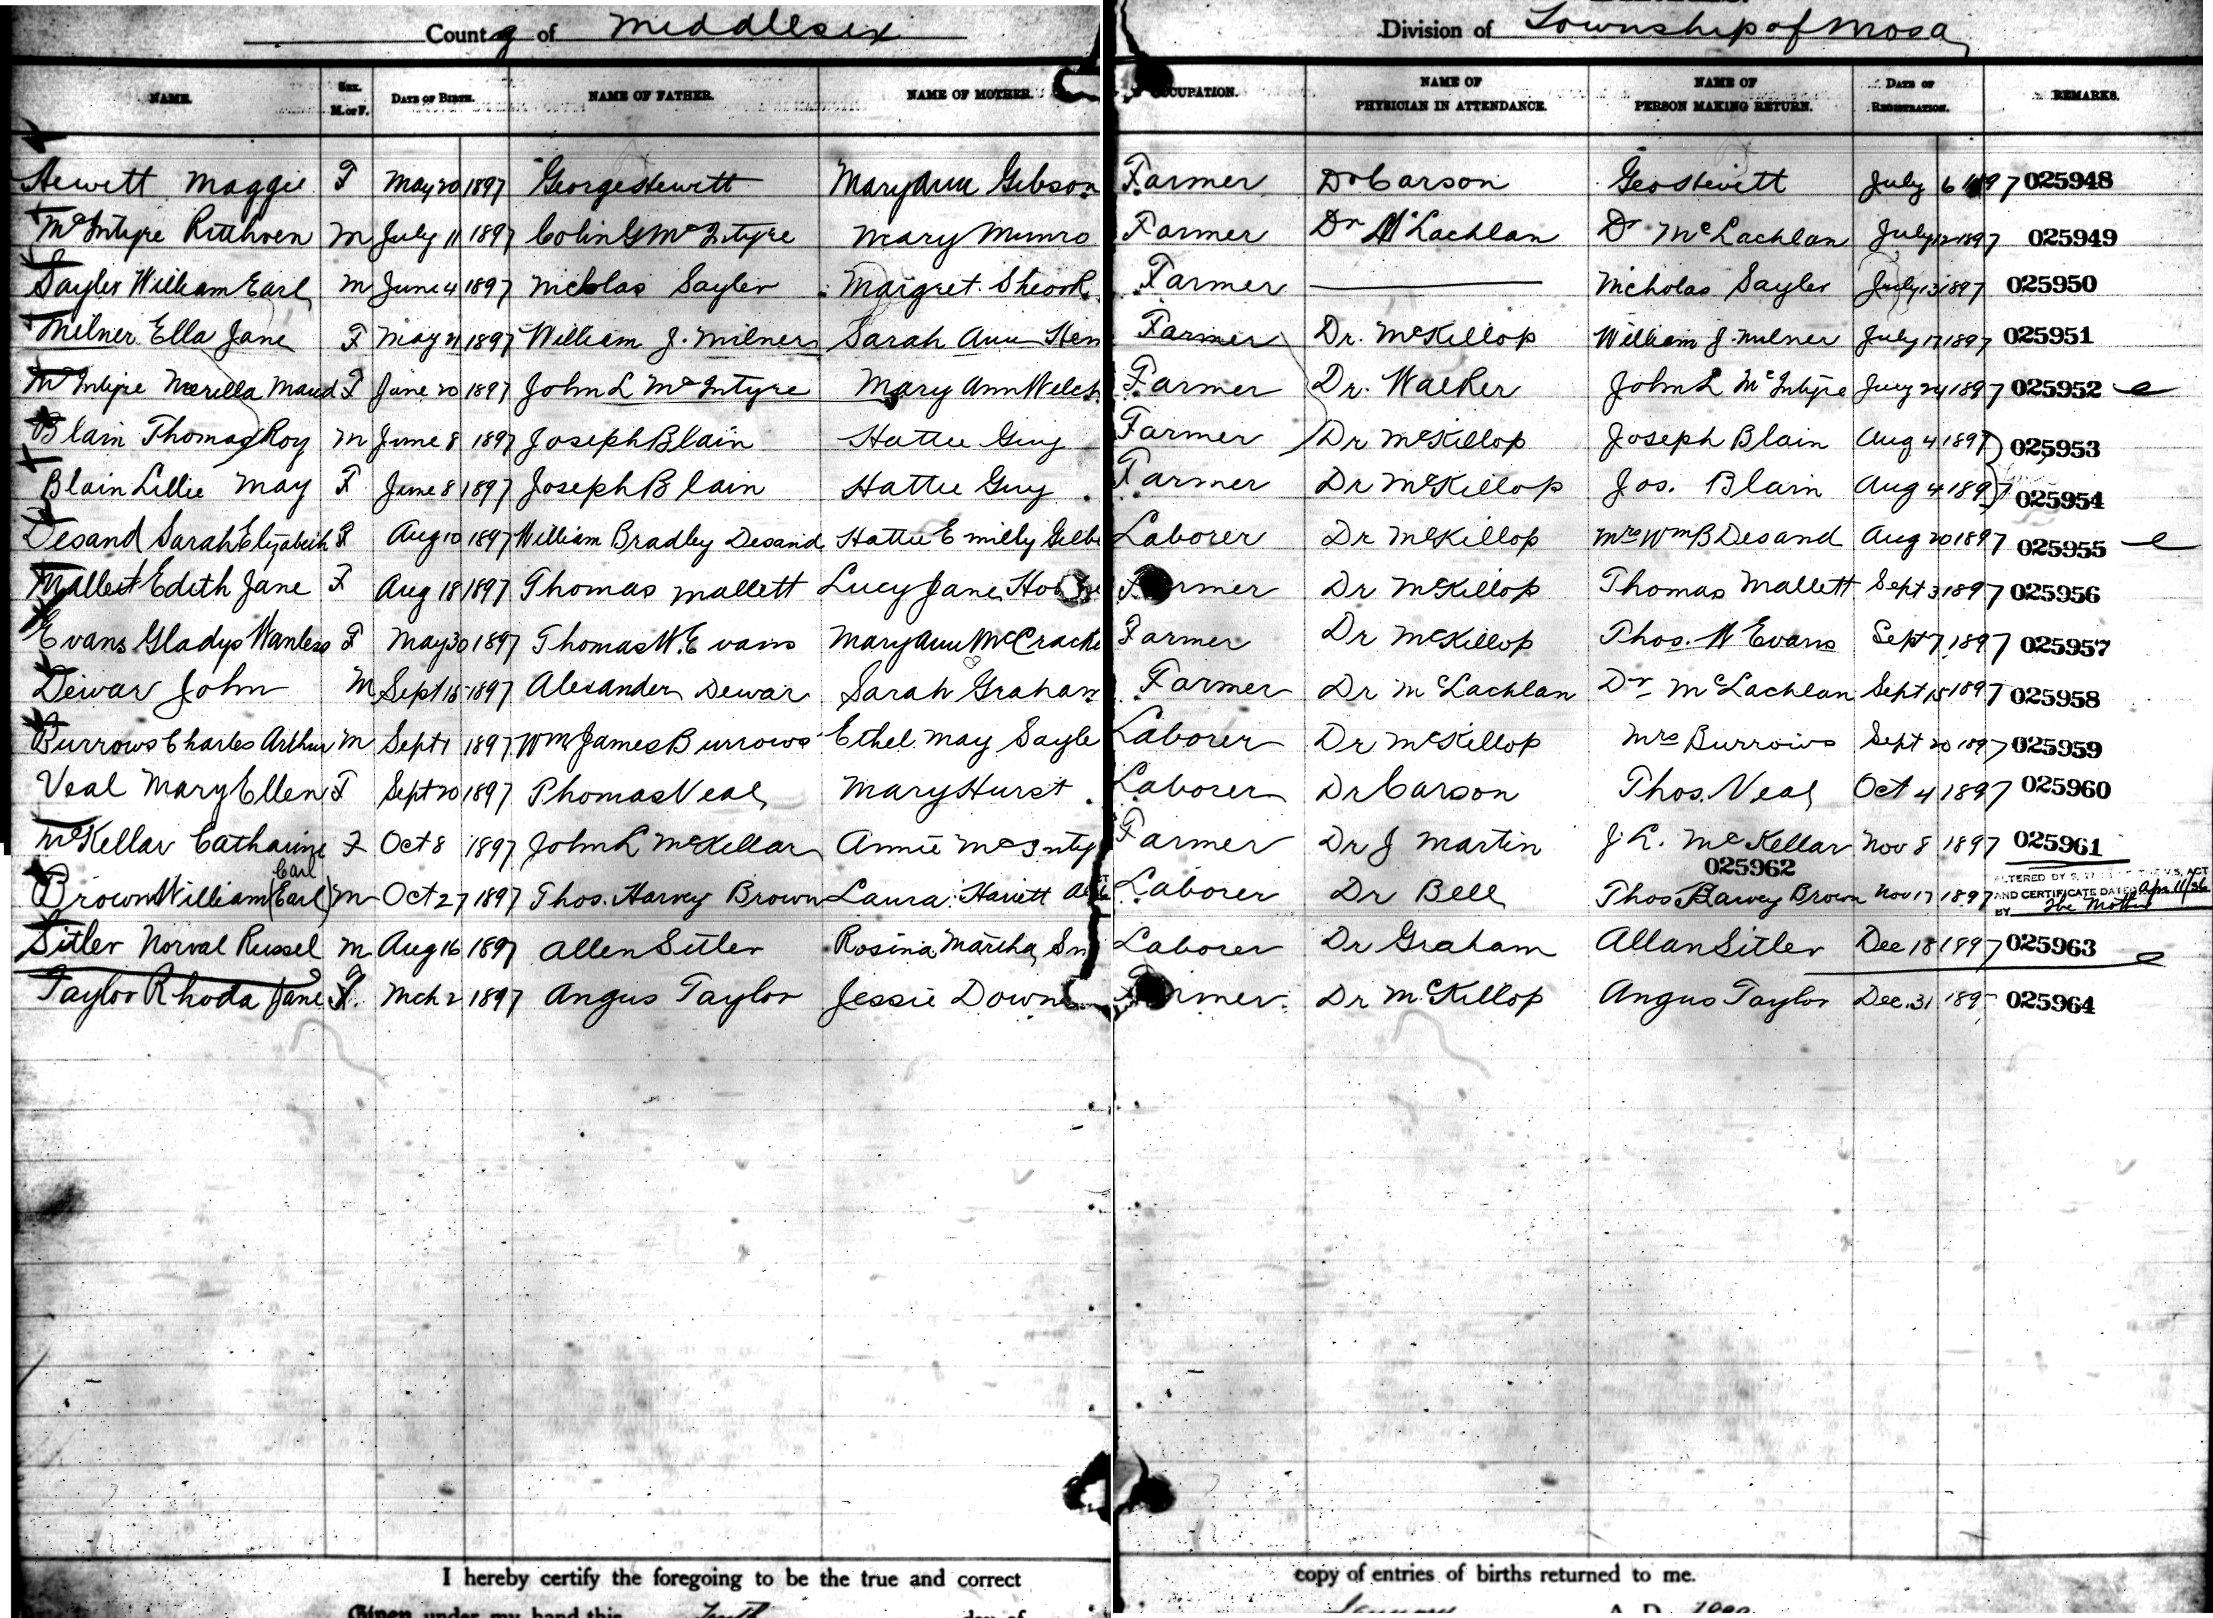 County of Middlesex Division of Township of Mosa
NAME. SEX. M. or F. DATE OF BIRTH. NAME OF FATHER. NAME OF MOTHER. OCCUPATION. NAME OF PHYSICIAN IN ATTENDANCE. NAME OF PERSON MAKING RETURN. DATE OF REGISTRATION. REMARKS.
Hewitt Maggie F May 20 1897 George Hewitt Mary Ann Gibson Farmer Dr Carson Geo Hewitt July 6 1897 025948
McIntyre Ruthven M July 11 1897 Colin G McIntyre Mary Munro Farmer Dr McLachlan Dr McLachlan July 12 1897 025949
Sayler William Earl M June 4 1897 Nicholas Sayler Margret Farmer Nicholas Sayler July 13 1897 025950
Milner Ella Jane F May 21 1897 William J. Milner Sarah Ann Hen Farmer Dr. McKillop William J. Milner July 17 1897 025951
McIntyre Merilla Maud F June 20 1897 John L McIntyre Mary Ann Welch Farmer Dr. Walker John L McIntyre July 24 1897 025952
Blain Thomas Roy M June 8 1897 Joseph Blain Hattie Guy Farmer Dr McKillop Joseph Blain Aug 4 1897 025953
Blain Lillie May F June 8 1897 Joseph Blain Hattie Guy Farmer Dr McKillop Jos. Blain Aug 4 1897 025954
Desand Sarah Elizabeth F Aug 10 1897 William Bradley Desand Hattie Emilly Gilbe Laborer Dr McKillop Mrs Wm B Desand Aug 20 1897 025955
Mallett Edith Jane F Aug 18 1897 Thomas Mallett Lucy Jane Farmer Dr McKillop Thomas Mallett Sept 3 1897 025956
Evans Gladys Wanless F May 30 1897 Thomas W. Evans Mary Ann McCracke Farmer Dr McKillop Thos. W Evans Sept 7 1897 025957
Dewar John M Sept 15 1897 Alexander Dewar Sarah Graham Farmer Dr McLachlan Dr McLachlan Sept 15 1897 025958
Burrows Charles Arthur M Sept 1 1897 Wm James Burrows Ethel May Sayle Laborer Dr McKillop Mrs Burrows Sept 20 1897 025959
Veal Mary Ellen F Sept 20 1897 Thomas Veal Mary Hurst Laborer Dr Carson Thos. Veal Oct 4 1897 025960
McKellar Catharine F Oct 8 1897 John L McKellar Annie McInty Farmer Dr J Martin J. L. McKellar Nov 8 1897 025961
Carl 025962
Brown William (Earl) M Oct 27 1897 Thos. Harvey Brown Laura Hariett Laborer Dr Bell Thos Harvey Brown Nov 17 1897 ALTERED BY AND CERTIFICATE DATED Apr 11/36 BY The Mother
Sitler Norval Russel M Aug 16 1897 Allen Sitler Rosina Martha Sn Laborer Dr Graham Allan Sitler Dec 18 1897 025963
Taylor Rhoda Jane F. Mch 2 1897 Angus Taylor Jessie Down Farmer Dr McKillop Angus Taylor Dec. 31 189 025964
I hereby certify the foregoing to be the true and correct copy of entries of births returned to me.
Given under my hand this Tenth day of January A. D.